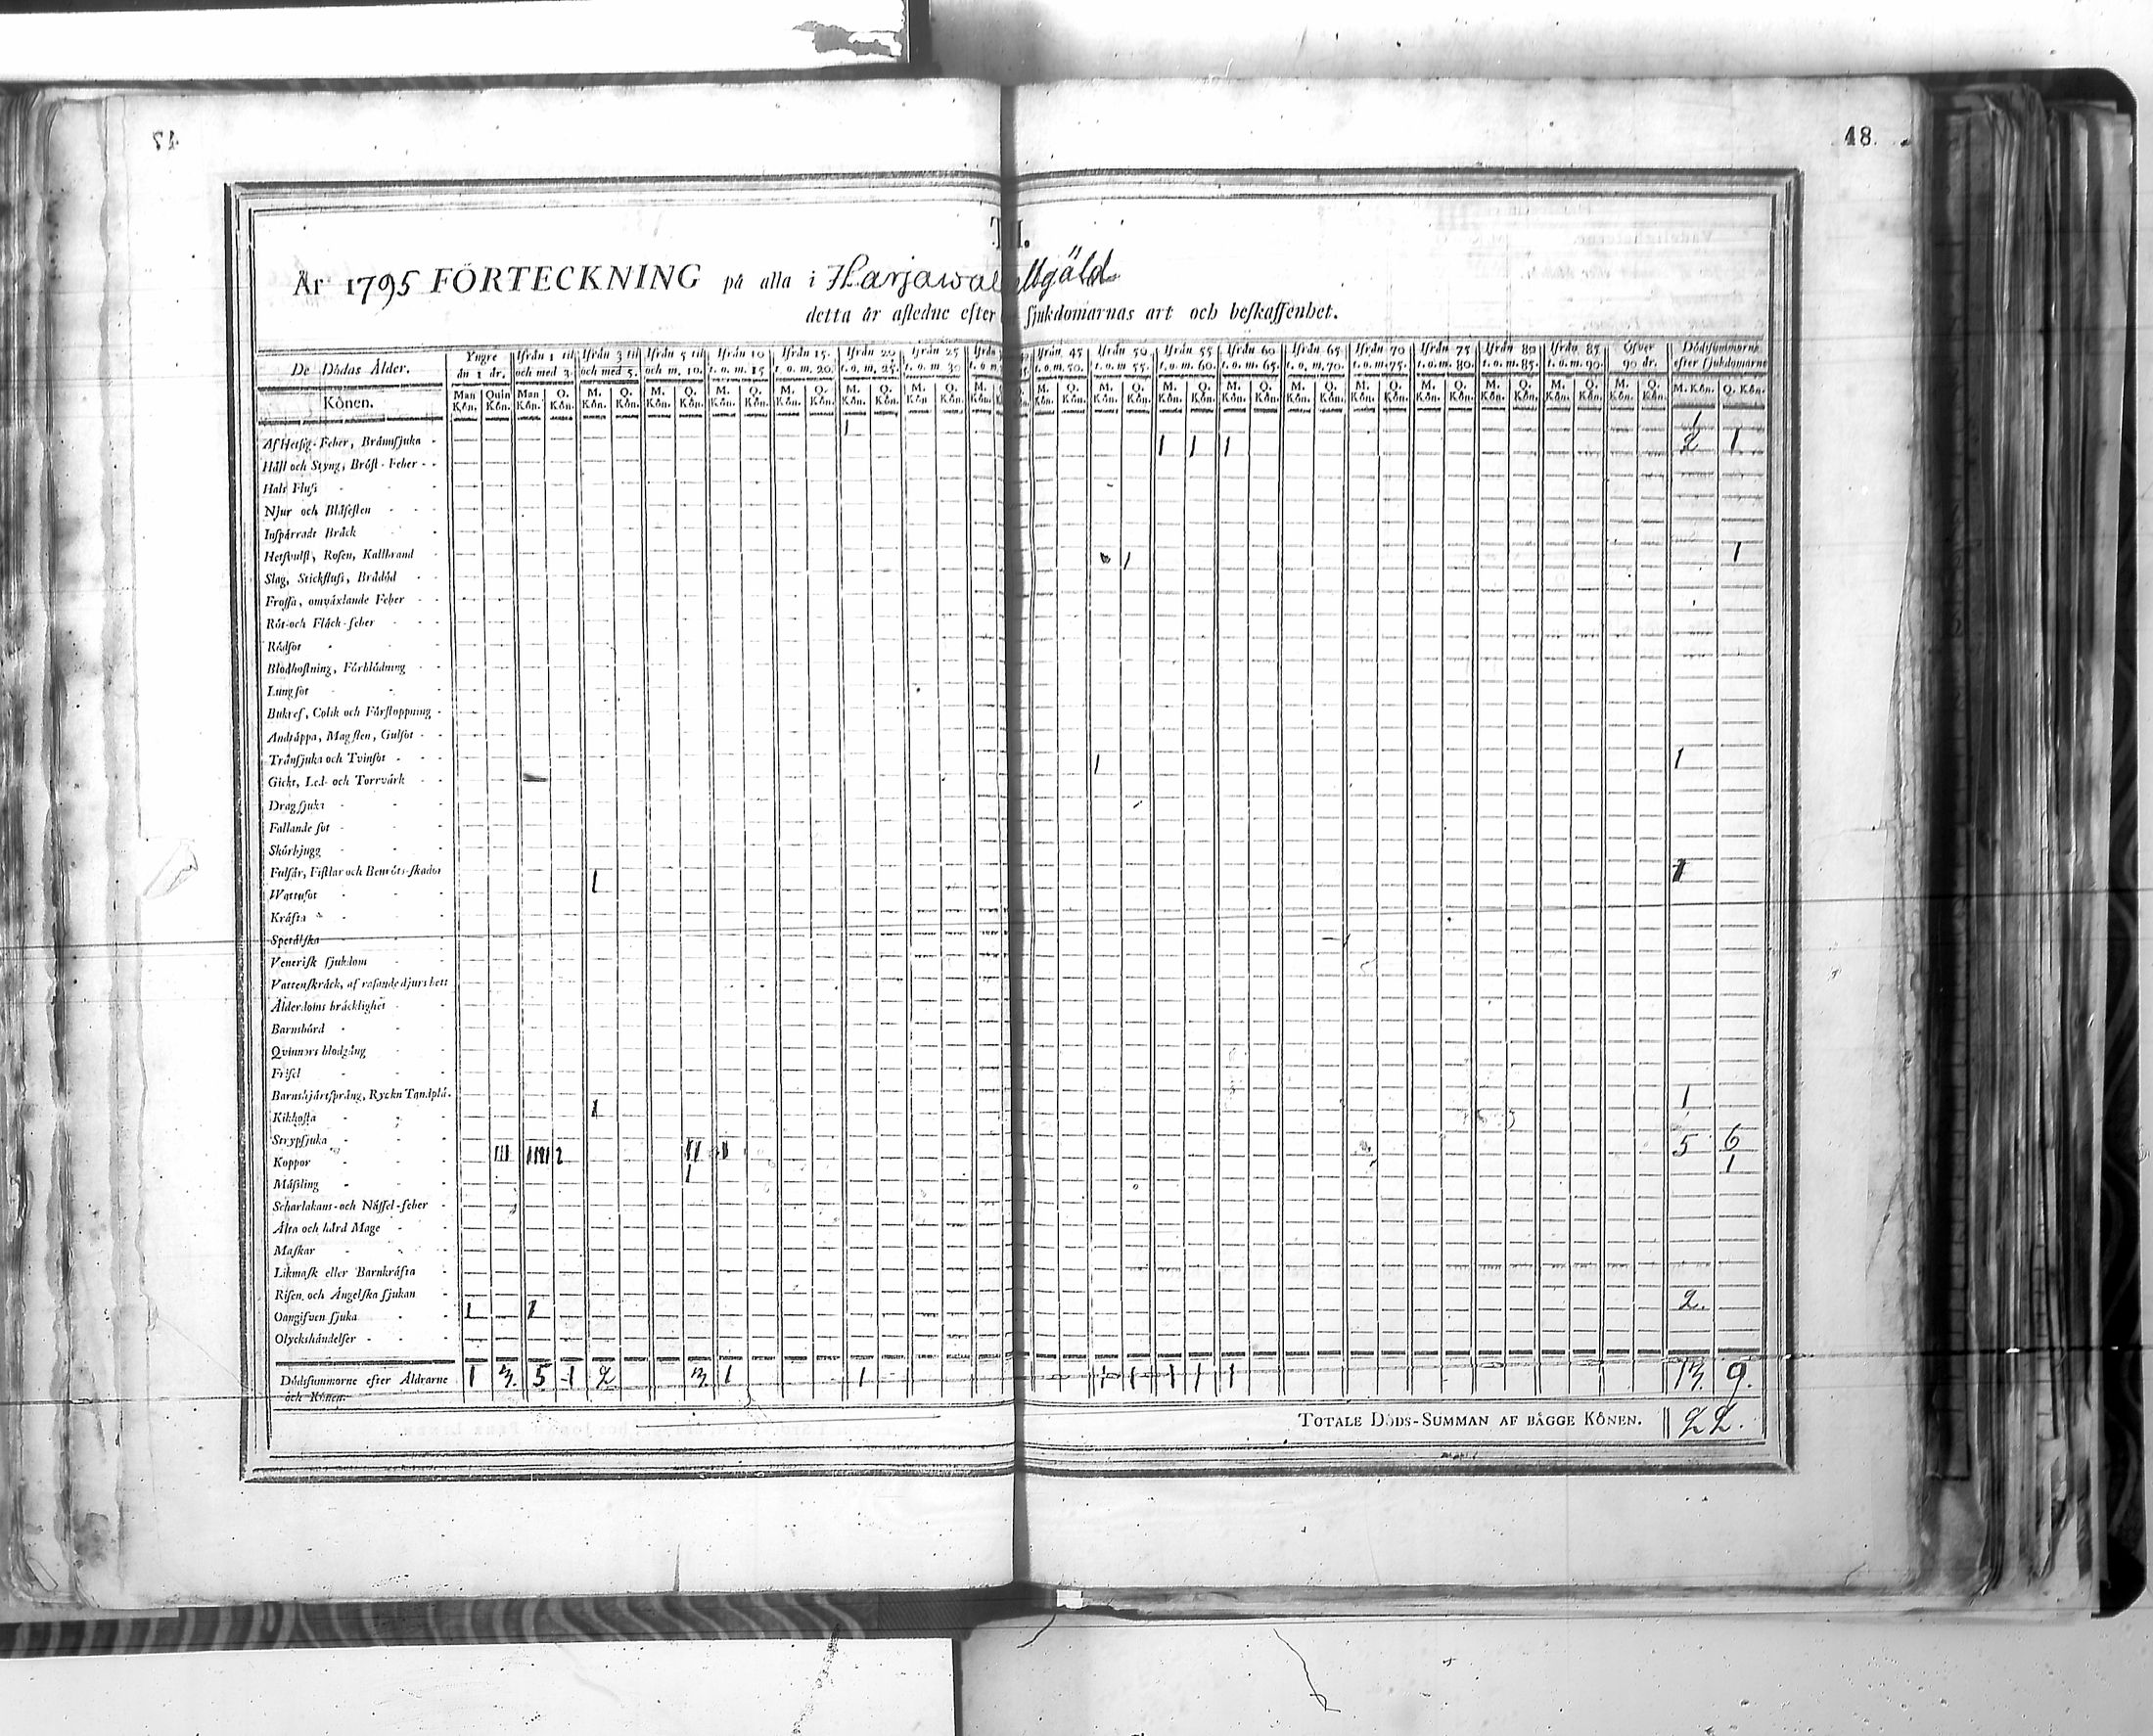 47
48.
III.
År 1795 FÖRTECKNING på alla i Harjawalla
detta år afledne efter sjukdomarnas art och beskaffenhet.
De Dödas Ålder. Yngre än 1 år. Ifrån 1 til och med 3. Ifrån 3 til och med 5. Ifrån 5 til och m. 10. Ifrån 10 t. o. m. 15 Ifrån 15. t. o. m. 20. Ifrån 20 t. o. m. 25. Ifrån 25 t. o. m. 30 Ifrån 45 t. o. m. 50. Ifrån 50 t. o. m. 55. Ifrån 55 t. o. m. 60. Ifrån 60 t. o. m. 65. Ifrån 65 t. o. m. 70. Ifrån 70 t. o. m. 75. Ifrån 75 t. o. m. 80. Ifrån 80 t. o. m. 85. Ifrån 85 t. o. m. 90. Öfver 90 år. Dödssummorna efter sjukdomarne
Könen. Man Kön. Quin Kön. Man Kön. Q. Kön. M. Kön. Q. Kön. M. Kön. Q. Kön. M. Kön. Q. Kön. M. Kön. Q. Kön. M. Kön. Q. Kön. M. Kön Q. Kön. M. Kön. Q. Kön. M. Kön. Q. Kön. M. Kön. Q. Kön. M. Kön. Q. Kön. M. Kön. Q. Kön. M. Kön. Q. Kön. M. Kön. Q. Kön. M. Kön. Q. Kön. M. Kön. Q. Kön. M. Kön. Q. Kön. M. Kön. Q. Kön.
1 1
Af Hetsig-Feber, Brännsjuka 1 1 1 2 1
Håll och Styng, Bröst-Feber
Hals Fluss
Njur och Blåsesten
Inspärradt Bråck
Hetsvulst, Rosen, Kallbrand 1 1
Slag, Stickfluss, Brådöd
Frossa, omväxlande Feber
Röt-och Fläck-feber
Rödsot
Blodhostning, Förblödning
Lungsot
Bukref, Colik och Förstoppning
Andtäppa, Magsten, Gulsot
Trånsjuka och Tvinsot 1 1
Gickt, Led- och Torrvärk
Dragsjuka
Fallande sot
Skörbjugg
Fulsår, Fistlar och Benröts-skador 1 1
Wattusot
Kräfta
Spetälska
Venerisk sjukdom
Vattenskräck, af rasande djurs bett
Ålderdoms bräcklighet
Barnsbörd
Qvinnors blodgång
Frisel
Barnshjärtsprång, Ryckn Tandplå. 1
Kikhosta 1
Strypsjuka 5 6
Koppor III IIIII 2 II 1
Mässling 1
Scharlakans-och Nässel-feber
Älta och hård Mage
Maskar
Likmask eller Barnkräfta
Risen och Ängelska sjukan 2.
Oangifven sjuka 1 1
Olyckshändelser
Dödssummorne efter Åldrarne och Könen. 1 3. 5 1 2 3 1 1 1 1 1 1 1 13. 9.
TOTALE DÖDS-SUMMAN AF BÄGGE KÖNEN. 22.